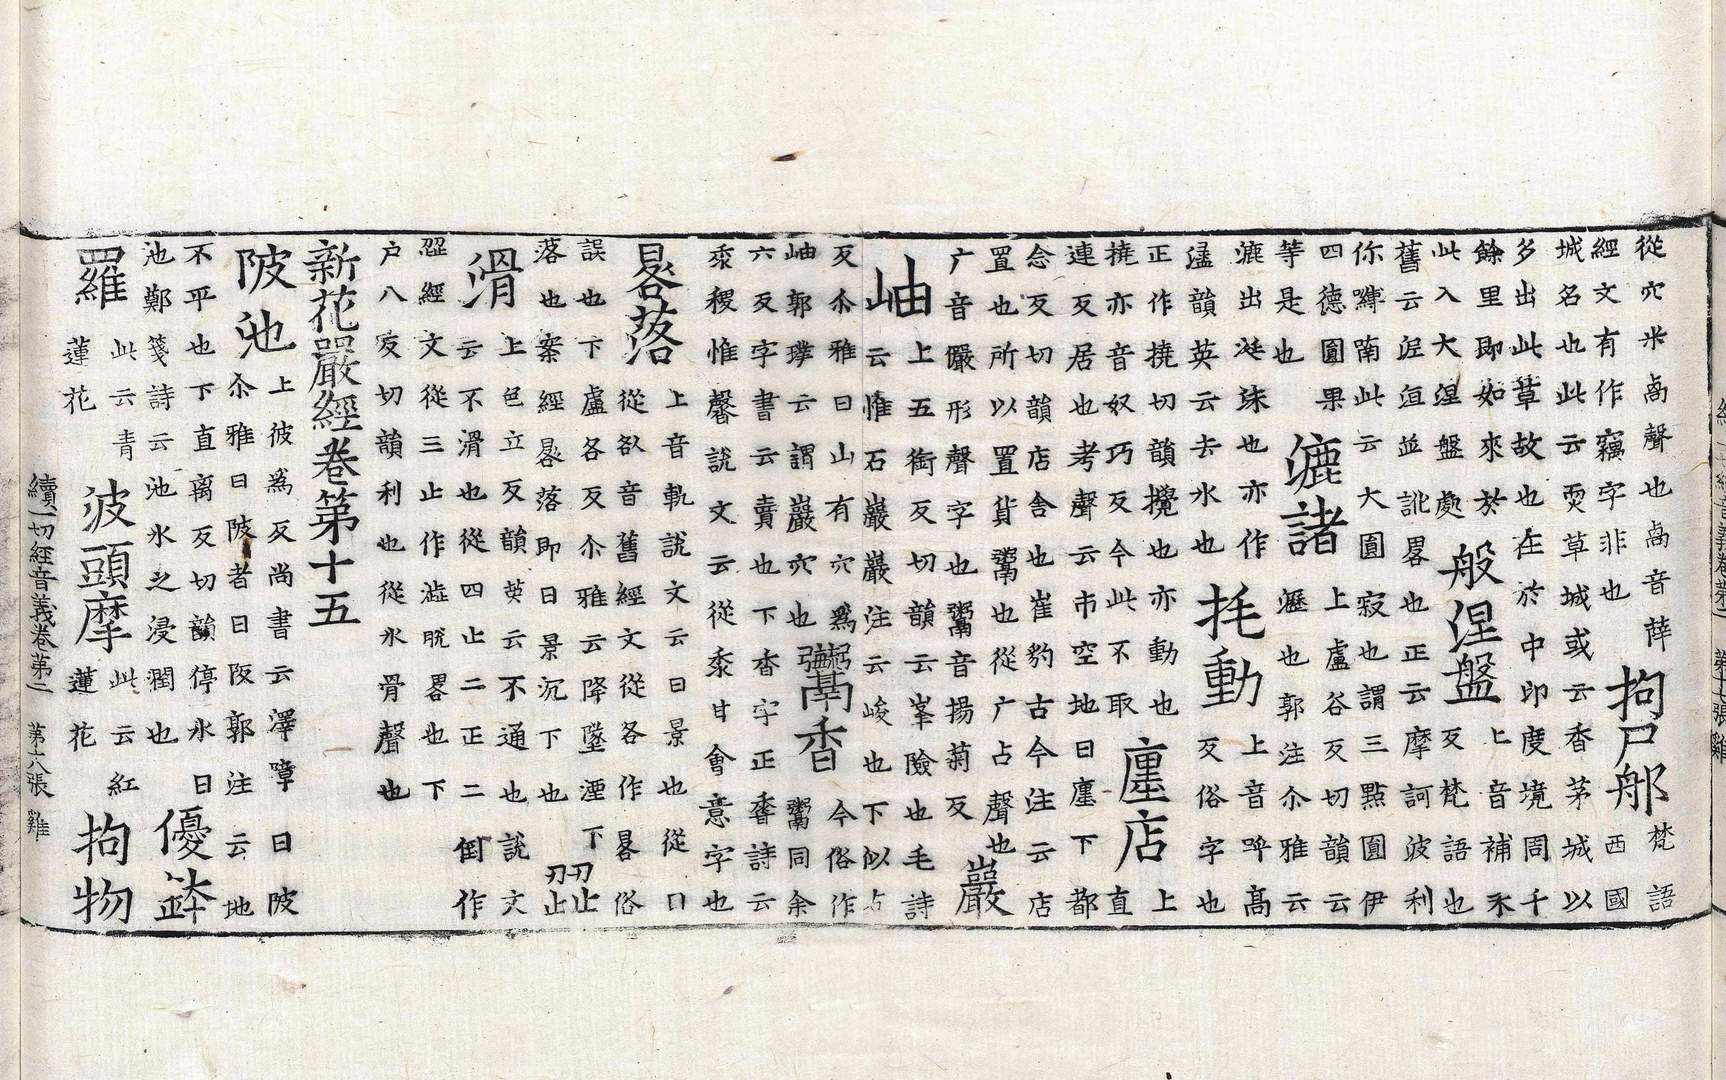 從穴米卨聲也卨音薛經文有作竊字非也拘尸那梵語西國
城名也此云耎草城或云香茅城以多出此草故也在於中印度境周千
餘里即如來於此入大涅盤處般涅盤上音補禾反梵語也
舊云泥洹並訛畧也正云摩訶波利你嚩喃此云大圓寂也謂三點圓伊
四德圓果等是也漉諸上盧谷反切韻云瀝也郭注尒雅云
漉出涎沫也亦作盝韻英云去水也㧌動上音呼高反俗字也
正作撓切韻攪也亦動也撓亦音奴巧反今此不取廛店上直
連反居也考聲云市空地曰廛下都念反切韻店舍也崔豹古今注云店
置也所以置貨鬻也從广占聲也广音儼形聲字也鬻音揚菊反巖
岫上五銜反切韻云峯險也毛詩云惟石巖巖注云峻也下似右
反尒雅曰山有穴爲岫郭璞云謂巖穴也鬻香今俗作鬻同余
六反字書云賣也下香字正𪏽詩云黍稷惟馨說文云從黍甘會意字也
晷落上音軌說文云日景也從口從咎音舊經文從各作晷俗
誤也下盧各反尒雅云降墜湮下落也案經晷落即日景沉下也歰
滑上色立反韻英云不通也說文云不滑也從四止二正二倒作
歰經文從三止作澁脫畧也下户八反切韻利也從水骨聲也
新花嚴經卷第十五
陂池上彼爲反尚書云澤障曰陂尒雅曰陂者曰阪郭注云地
不平也下直离反切韻停水曰池鄭箋詩云池水之浸潤也優鉢
羅此云青蓮花波頭摩此云紅蓮花拘物
續一切經音義卷第二 第六張 雞